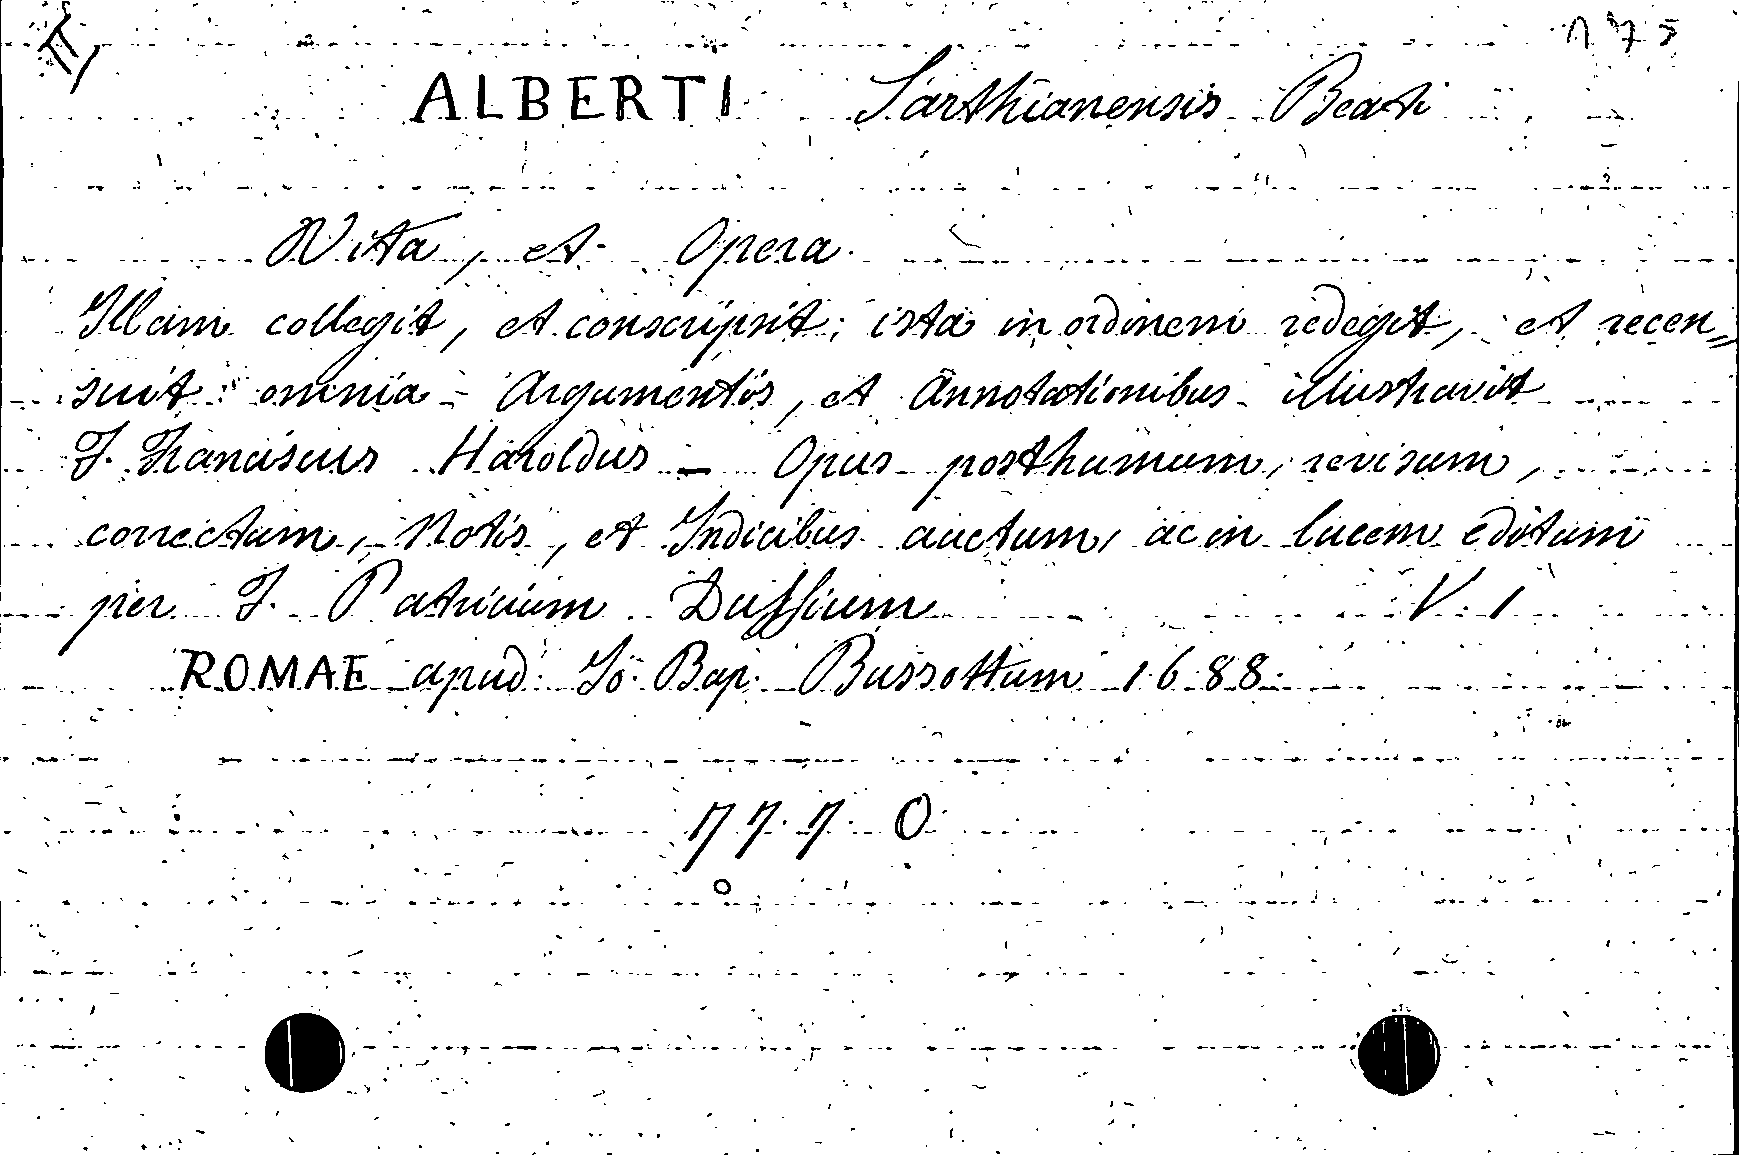 175
ALBERTI Sarthianensis Beati
Vita, et Opera.
Illam collegit, et conscripsit; ista in ordinem redegit, et recen„
suit omnia – Argumentis, et Annotationibus illustravit
F. Franciscus Haroldus – Opus posthumum, revisum,
correctum, Notis, et Indicibus auctum, ac in lucem editum
per F. Patricium Duffium V. 1
ROMAE apud Jo. Bap. Bussottum 1688.
77.7. O